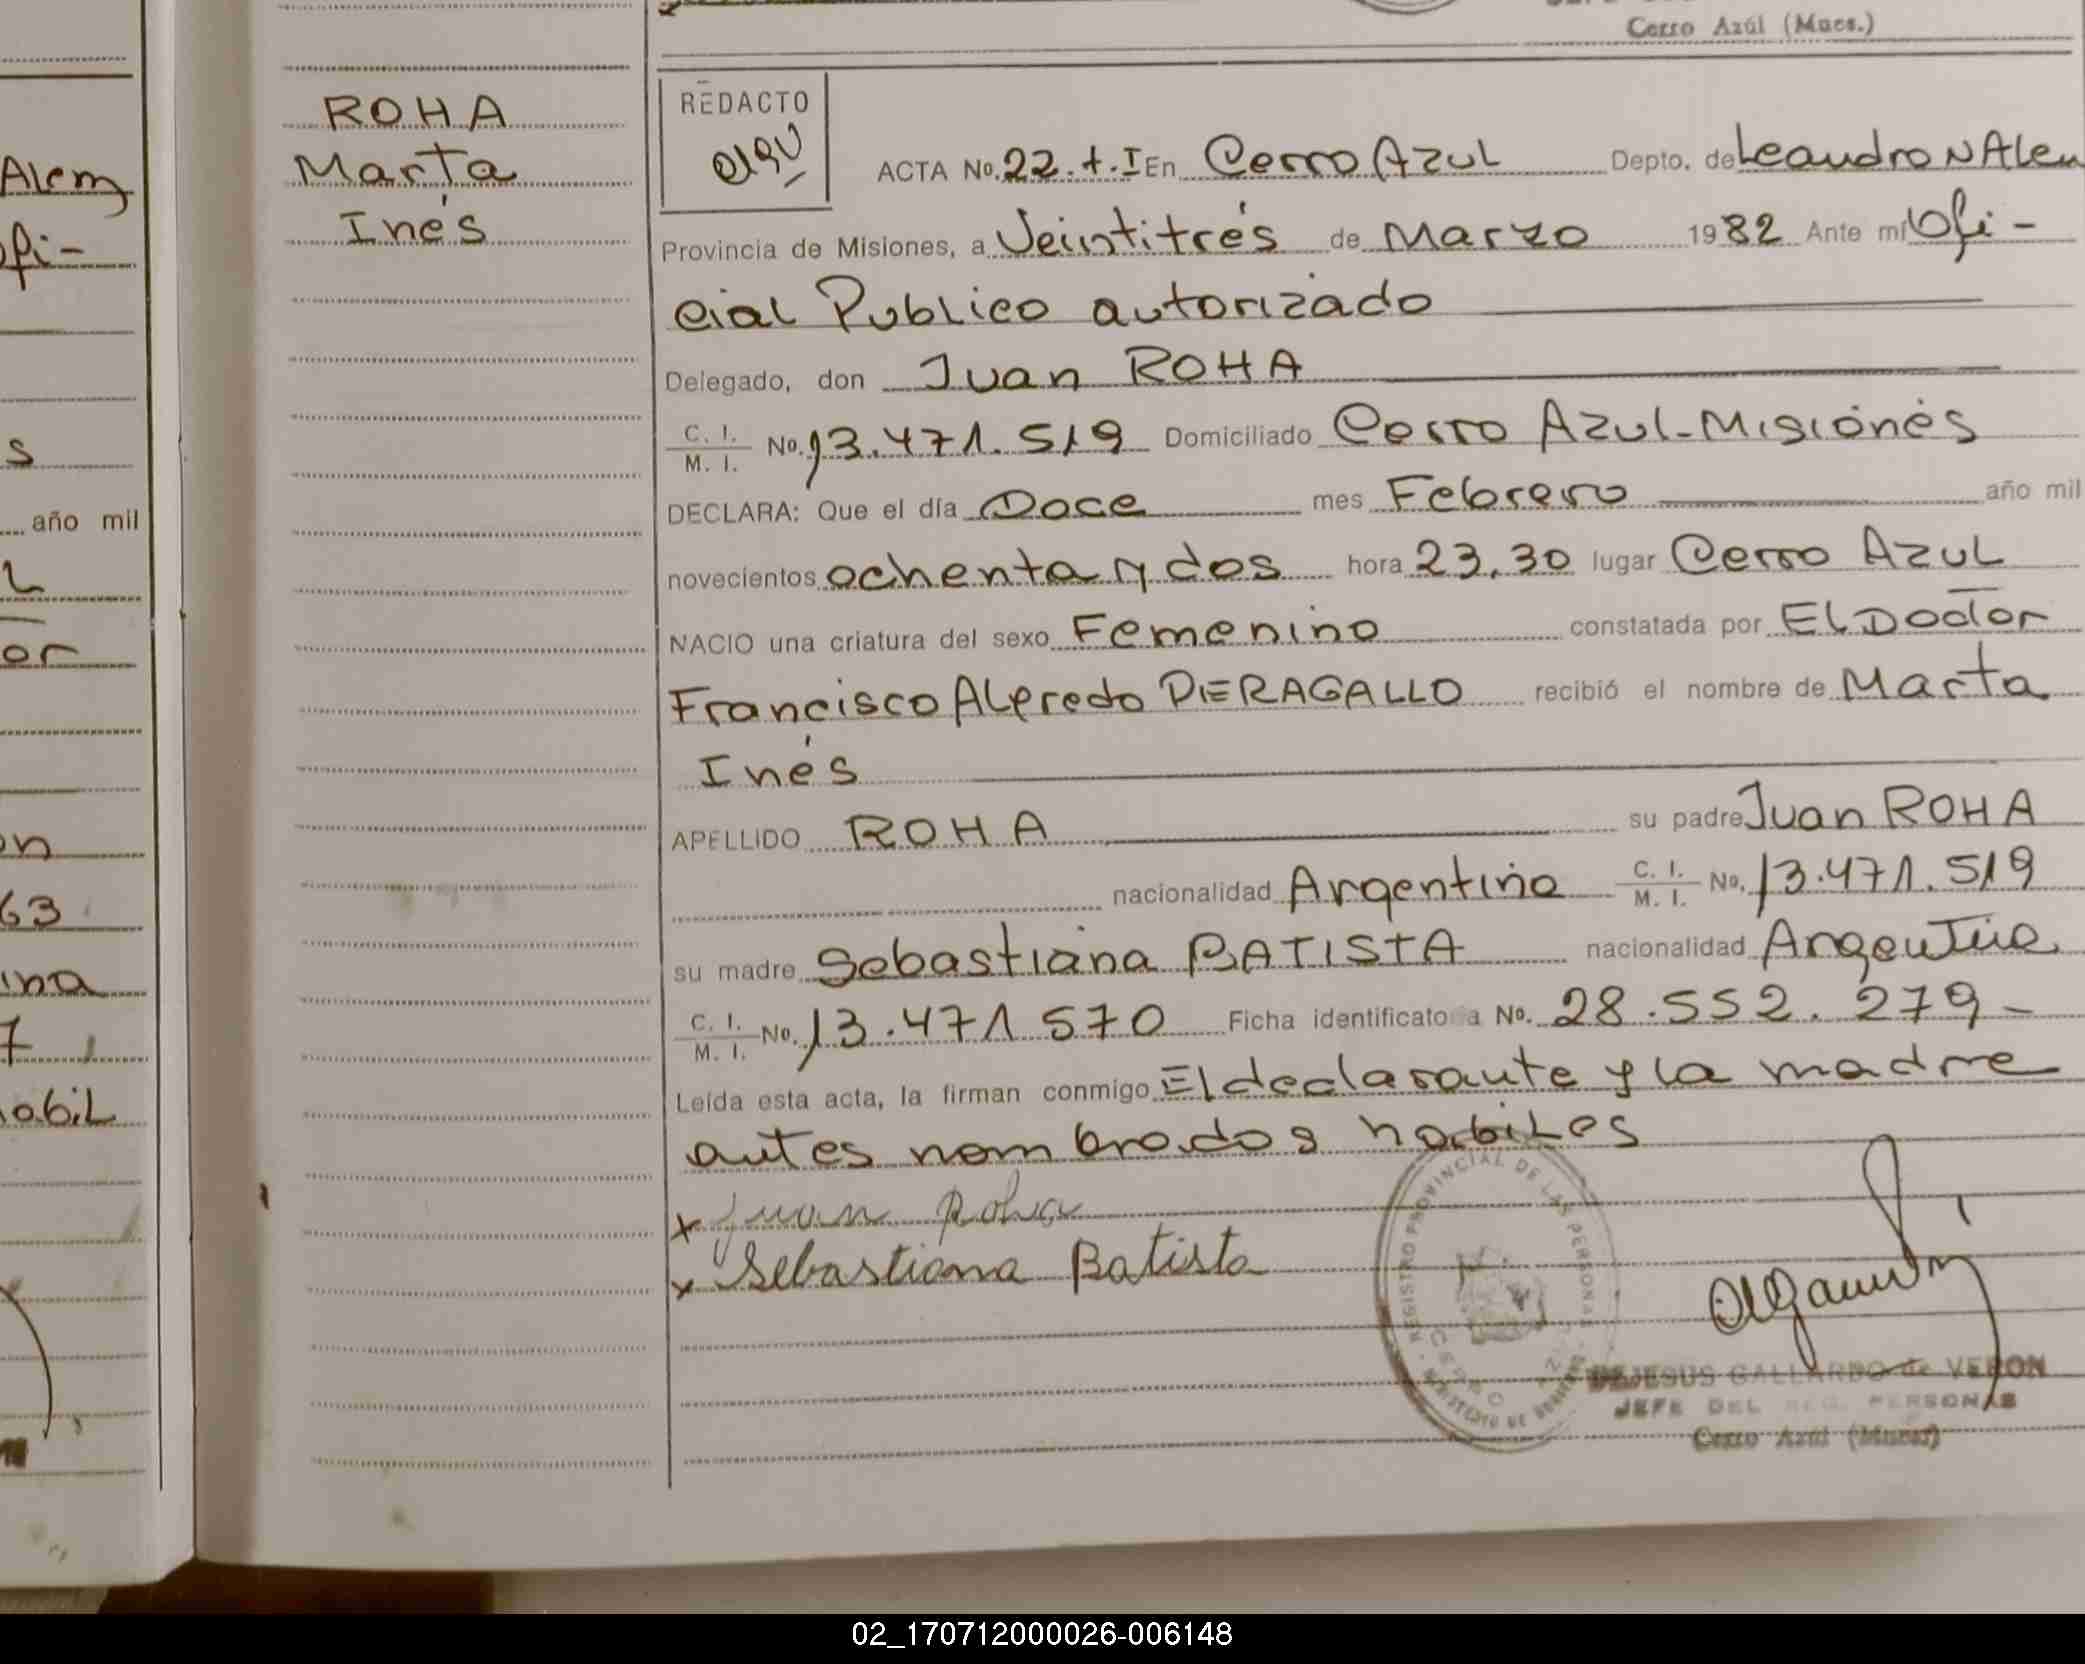 Cerro Azúl (Mnes.)
ROHA
Marta
Inés
REDACTO
ACTA No. 22. t. I En Cerro Azul Depto. de Leandro N Alem
Provincia de Misiones, a Veintitrés de Marzo 1982 Ante mí Ofi-
cial Publico autorizado
Delegado, don Juan ROHA
C. I.
M. I. No. 13.471.519 Domiciliado Cerro Azul-Misiones
DECLARA: Que el día Doce mes Febrero año mil
novecientos ochenta y dos hora 23,30 lugar Cerro Azul
NACIO una criatura del sexo Femenino constatada por El Doctor
Francisco Alfredo PIERAGALLO recibió el nombre de Marta
Inés
APELLIDO ROHA su padre Juan ROHA
nacionalidad Argentina C. I.
M. I. No. 13.471.519
su madre Sebastiana BATISTA nacionalidad Argentina
C. I.
M. I. No. 13.471 570 Ficha identificatoria No. 28.552.279-
Leída esta acta, la firman conmigo El declarante y la madre
antes nombrados habiles
x Juan Roha
x Sebastiana Batista
REGISTRO PROVINCIAL DE LAS PERSONAS
CERRO AZUL
DEJESUS GALLARDO de VERON
JEFE DEL REG. PERSONAS
Cerro Azúl (Mnes)
Alem
ofi-
s
año mil
or
on
63
ina
7
habil
02_170712000026-006148